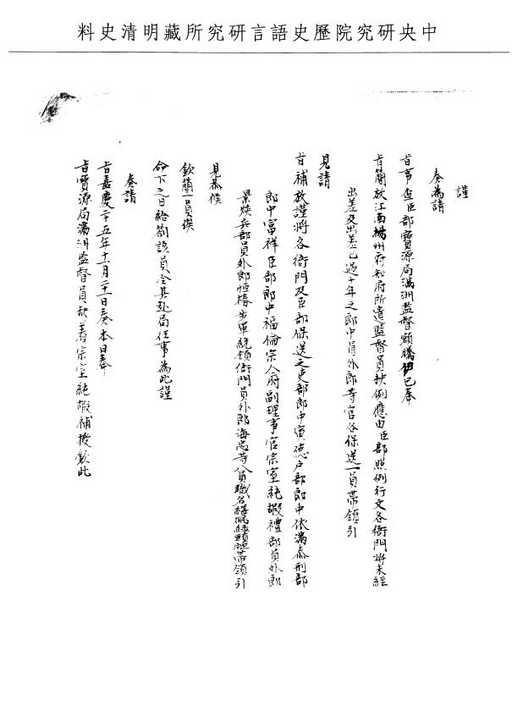 中央研究院歷史語言研究所藏明清史料
謹
奏為請
旨事查臣部寶源局滿洲監督顧騰伊已奉
旨簡放江西揚州府知府所遺監督員缺例應由臣部照例行文各衙門將未經
出差及出差已過十年之郎中員外郎等官各保送一員帶領引
見請
旨補放謹將各衙門及臣部保送之吏部郎中寅德戶部郎中依滿泰刑部
郎中富祥臣部郎中福倫宗人府副理事官宗室純嘏禮部員外郎
景煐兵部員外郎恒椿步軍統領衙門員外郎海忠等八員職名繕寫綠頭牌帶領引
見恭候
欽簡一員俟
命下之日給劄該員令其赴局任事為此謹
奏請
旨嘉慶二十五年十一月二十二日奏本日奉
旨寶源局滿洲監督員缺着宗室純嘏補授欽此